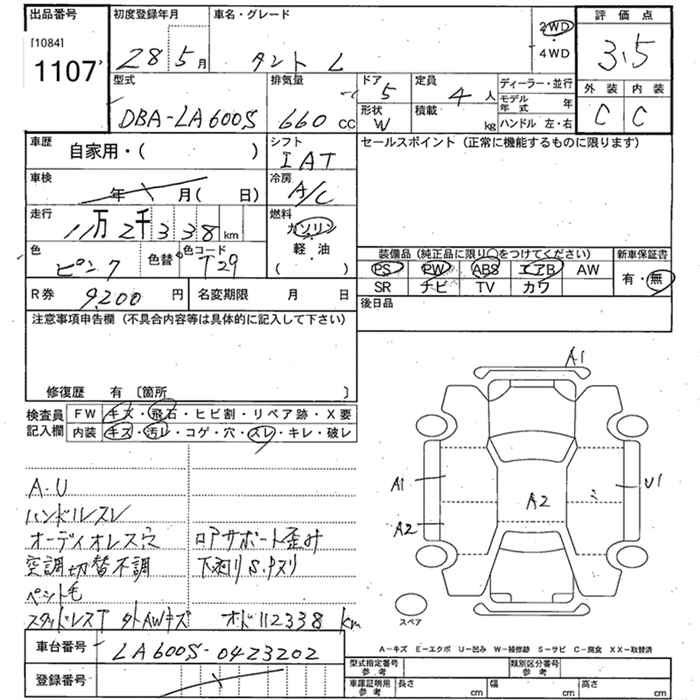 出品番号 初度登録年月 車名・グレード 評価点
[1084]
1107
28 5月 タント L 2WD・4WD 3.5
型式 排気量 ドア 定員 ディーラー・並行 外装 内装
5 4人 モデル年式 年
DBA-LA600S 660cc 形状 W 積載 kg ハンドル 左・右 C C
車歴 自家用・( ) シフト IAT セールスポイント (正常に機能するものに限ります)
車検 年 月( 日) 冷房 A/C
走行 11万2千338km 燃料 ガソリン・軽・油 ( )
色 ピンク 色替 色コード T29
装備品 (純正品に限り○をつけてください) 新車保証書
PS PW ABS エアB AW 有・無
SR ナビ TV カワ
R券 9200円 名変期限 月 日 後日品
注意事項申告欄 (不具合内容等は具体的に記入して下さい)
修復歴 有 〔箇所 〕
検査員記入欄 FW キズ・飛石・ヒビ割・リペア跡・X要
内装 キズ・汚レ・コゲ・穴・スレ・キレ・破レ
A1
A1 A2 U1
A2
A.U
ハンドルスレ
オーディオレス穴 ロアサポート歪み
空調切替不調 下廻りS.ケズリ
ペット毛
スタッドレスT タトAWキズ オド112338km
スペア
A-キズ E-エクボ U-凹み W-補修跡 S-サビ C-腐食 XX-取替済
車台番号 LA600S-0423202
登録番号
型式指定番号 参考 類別区分番号 参考
車庫証明用 参考 長さ cm 幅 cm 高さ cm